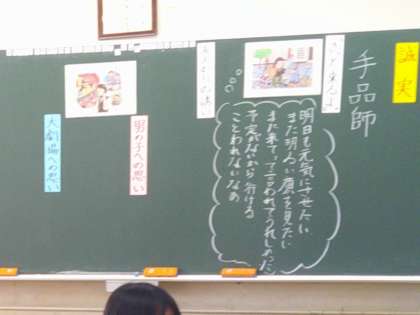 誠実
手品師
明日も元気にさせたい
また明るい顔を見たい
また来てって言われてうれしかった
予定がないから行ける
ことわれないなあ
男の子への思い
大劇場への思い